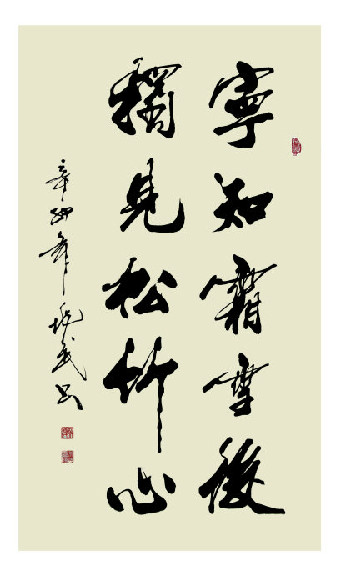 寧知霜雪後
獨見松竹心
辛卯年武书